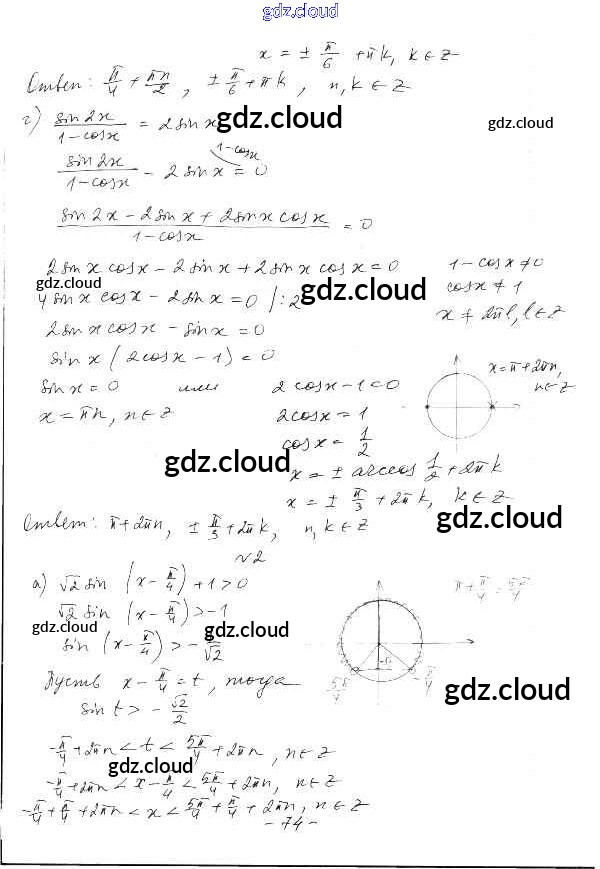 gdz.cloud
x = ± π/6 + πk, k ∈ Z
Ответ: π/4 + πn/2, ± π/6 + πk, n, k ∈ Z
г) sin2x/(1-cosx) = 2sinx
gdz.cloud
gdz.cloud
sin2x/(1-cosx) - 2sinx = 0
1-cosx
(sin2x - 2sinx + 2sinxcosx)/(1-cosx) = 0
2sinxcosx - 2sinx + 2sinxcosx = 0
1-cosx ≠ 0
gdz.cloud
gdz.cloud
gdz.cloud
4sinxcosx - 2sinx = 0 /:2
cosx ≠ 1
x ≠ 2πl, l ∈ Z
2sinxcosx - sinx = 0
sinx(2cosx - 1) = 0
x = π + 2πn,
n ∈ Z
sinx = 0 или 2cosx - 1 = 0
x = πn, n ∈ Z 2cosx = 1
cosx = 1/2
gdz.cloud
gdz.cloud
x = ± arccos 1/2 + 2πk
x = ± π/3 + 2πk, k ∈ Z
Ответ: π + 2πn, ± π/3 + 2πk, n, k ∈ Z
gdz.cloud
√2
а) √2 sin (x - π/4) + 1 > 0
π + π/4 = 5π/4
√2 sin (x - π/4) > -1
gdz.cloud
gdz.cloud
sin (x - π/4) > - 1/√2
Пусть x - π/4 = t, тогда
5π/4
-π/4
gdz.cloud
sin t > - √2/2
-π/4 + 2πn < t < 5π/4 + 2πn, n ∈ Z
gdz.cloud
-π/4 + 2πn < x - π/4 < 5π/4 + 2πn, n ∈ Z
-π/4 + π/4 + 2πn < x < 5π/4 + π/4 + 2πn, n ∈ Z
- 74 -